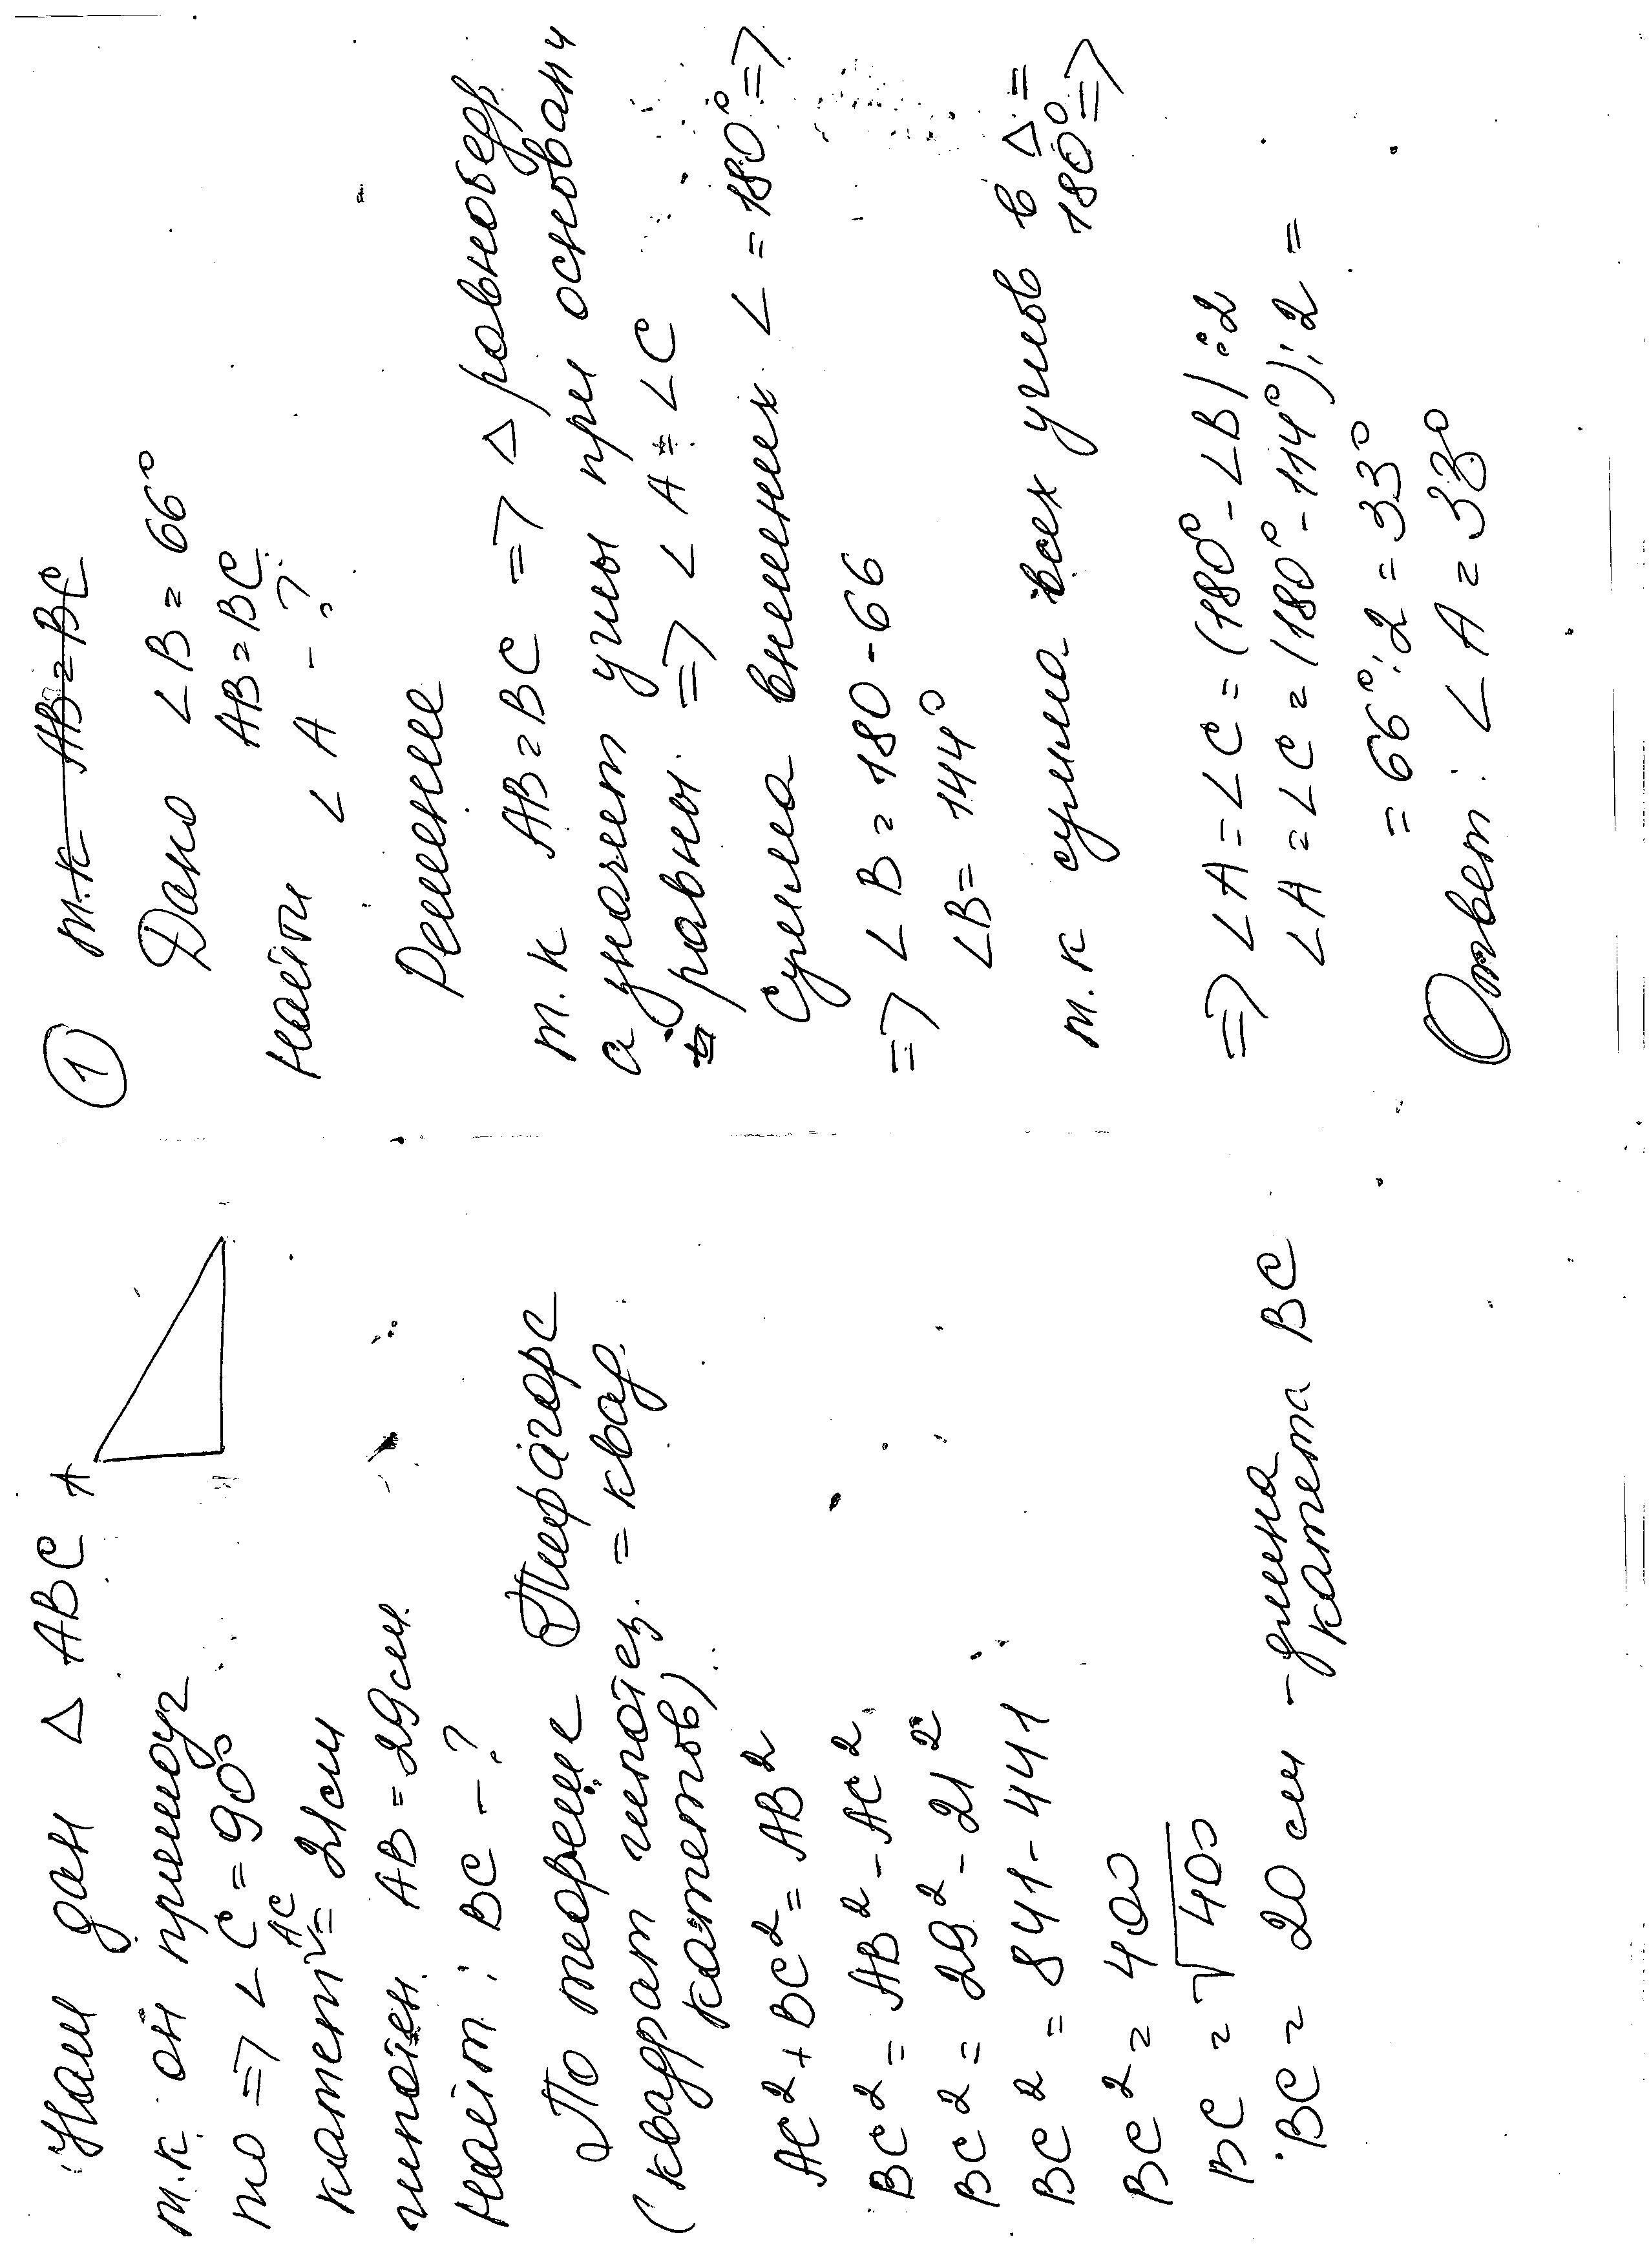 Нам дан △ ABC A
т.к. он прямоуг
то => ∠ C = 90°
AC
катет = 21см
гипотен. AB = 29см.
Найт: BC - ?
По теореме Пифагора
(квадрат гипотез. = квад.
катетов)
AC² + BC² = AB²
BC² = AB² - AC²
BC² = 29² - 21²
BC² = 841 - 441
BC² = 400
BC = √400
BC = 20 см - длина
катета BC
① т.к AB = BC
Дано ∠B = 66°
AB = BC
Найти ∠ A - ?
Решение
т.к AB = BC => △ равнобедр
а значит углы при основани
равны. => ∠ A = ∠ C
Сумма внешних ∠ = 180° =>
=> ∠ B = 180 - 66
∠B = 144°
т.к сумма всех углов в △ =
180° =>
=> ∠A = ∠C = (180° - ∠B) : 2
∠A = ∠C = (180° - 114°) : 2 =
= 66° : 2 = 33°
Ответ: ∠ A = 33°